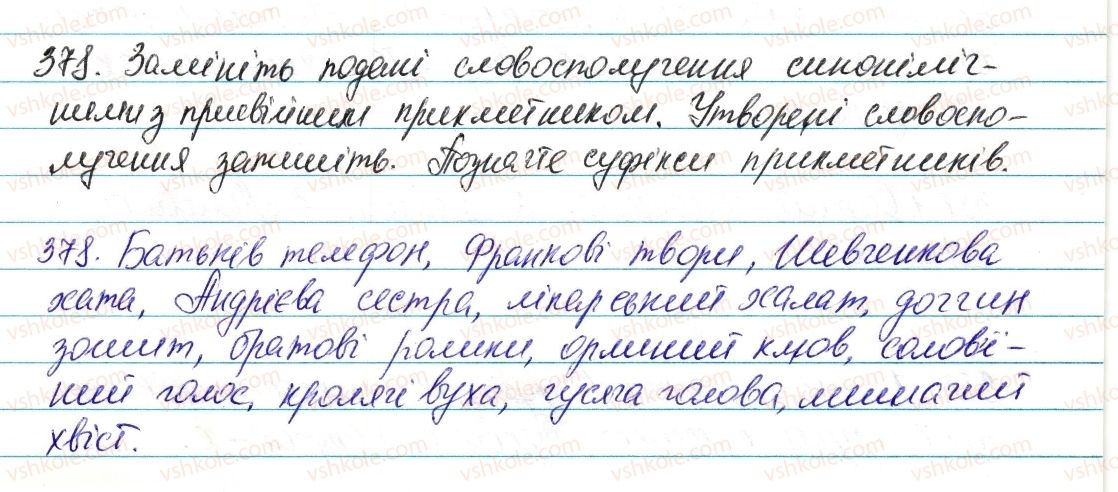 379. Замініть подані словосполучення синоніміч-
ними з присвійним прикметником. Утворені словоспо-
лучення запишіть. Позначте суфікси прикметників.
379. Батьків телефон, Франкові твори, Шевченкова
хата, Андрієва сестра, лікарський халат, доччин
зошит, братові ролики, орлиний клюв, солов'ї-
ний голос, кролячі вуха, гусяча голова, мишачий
хвіст.